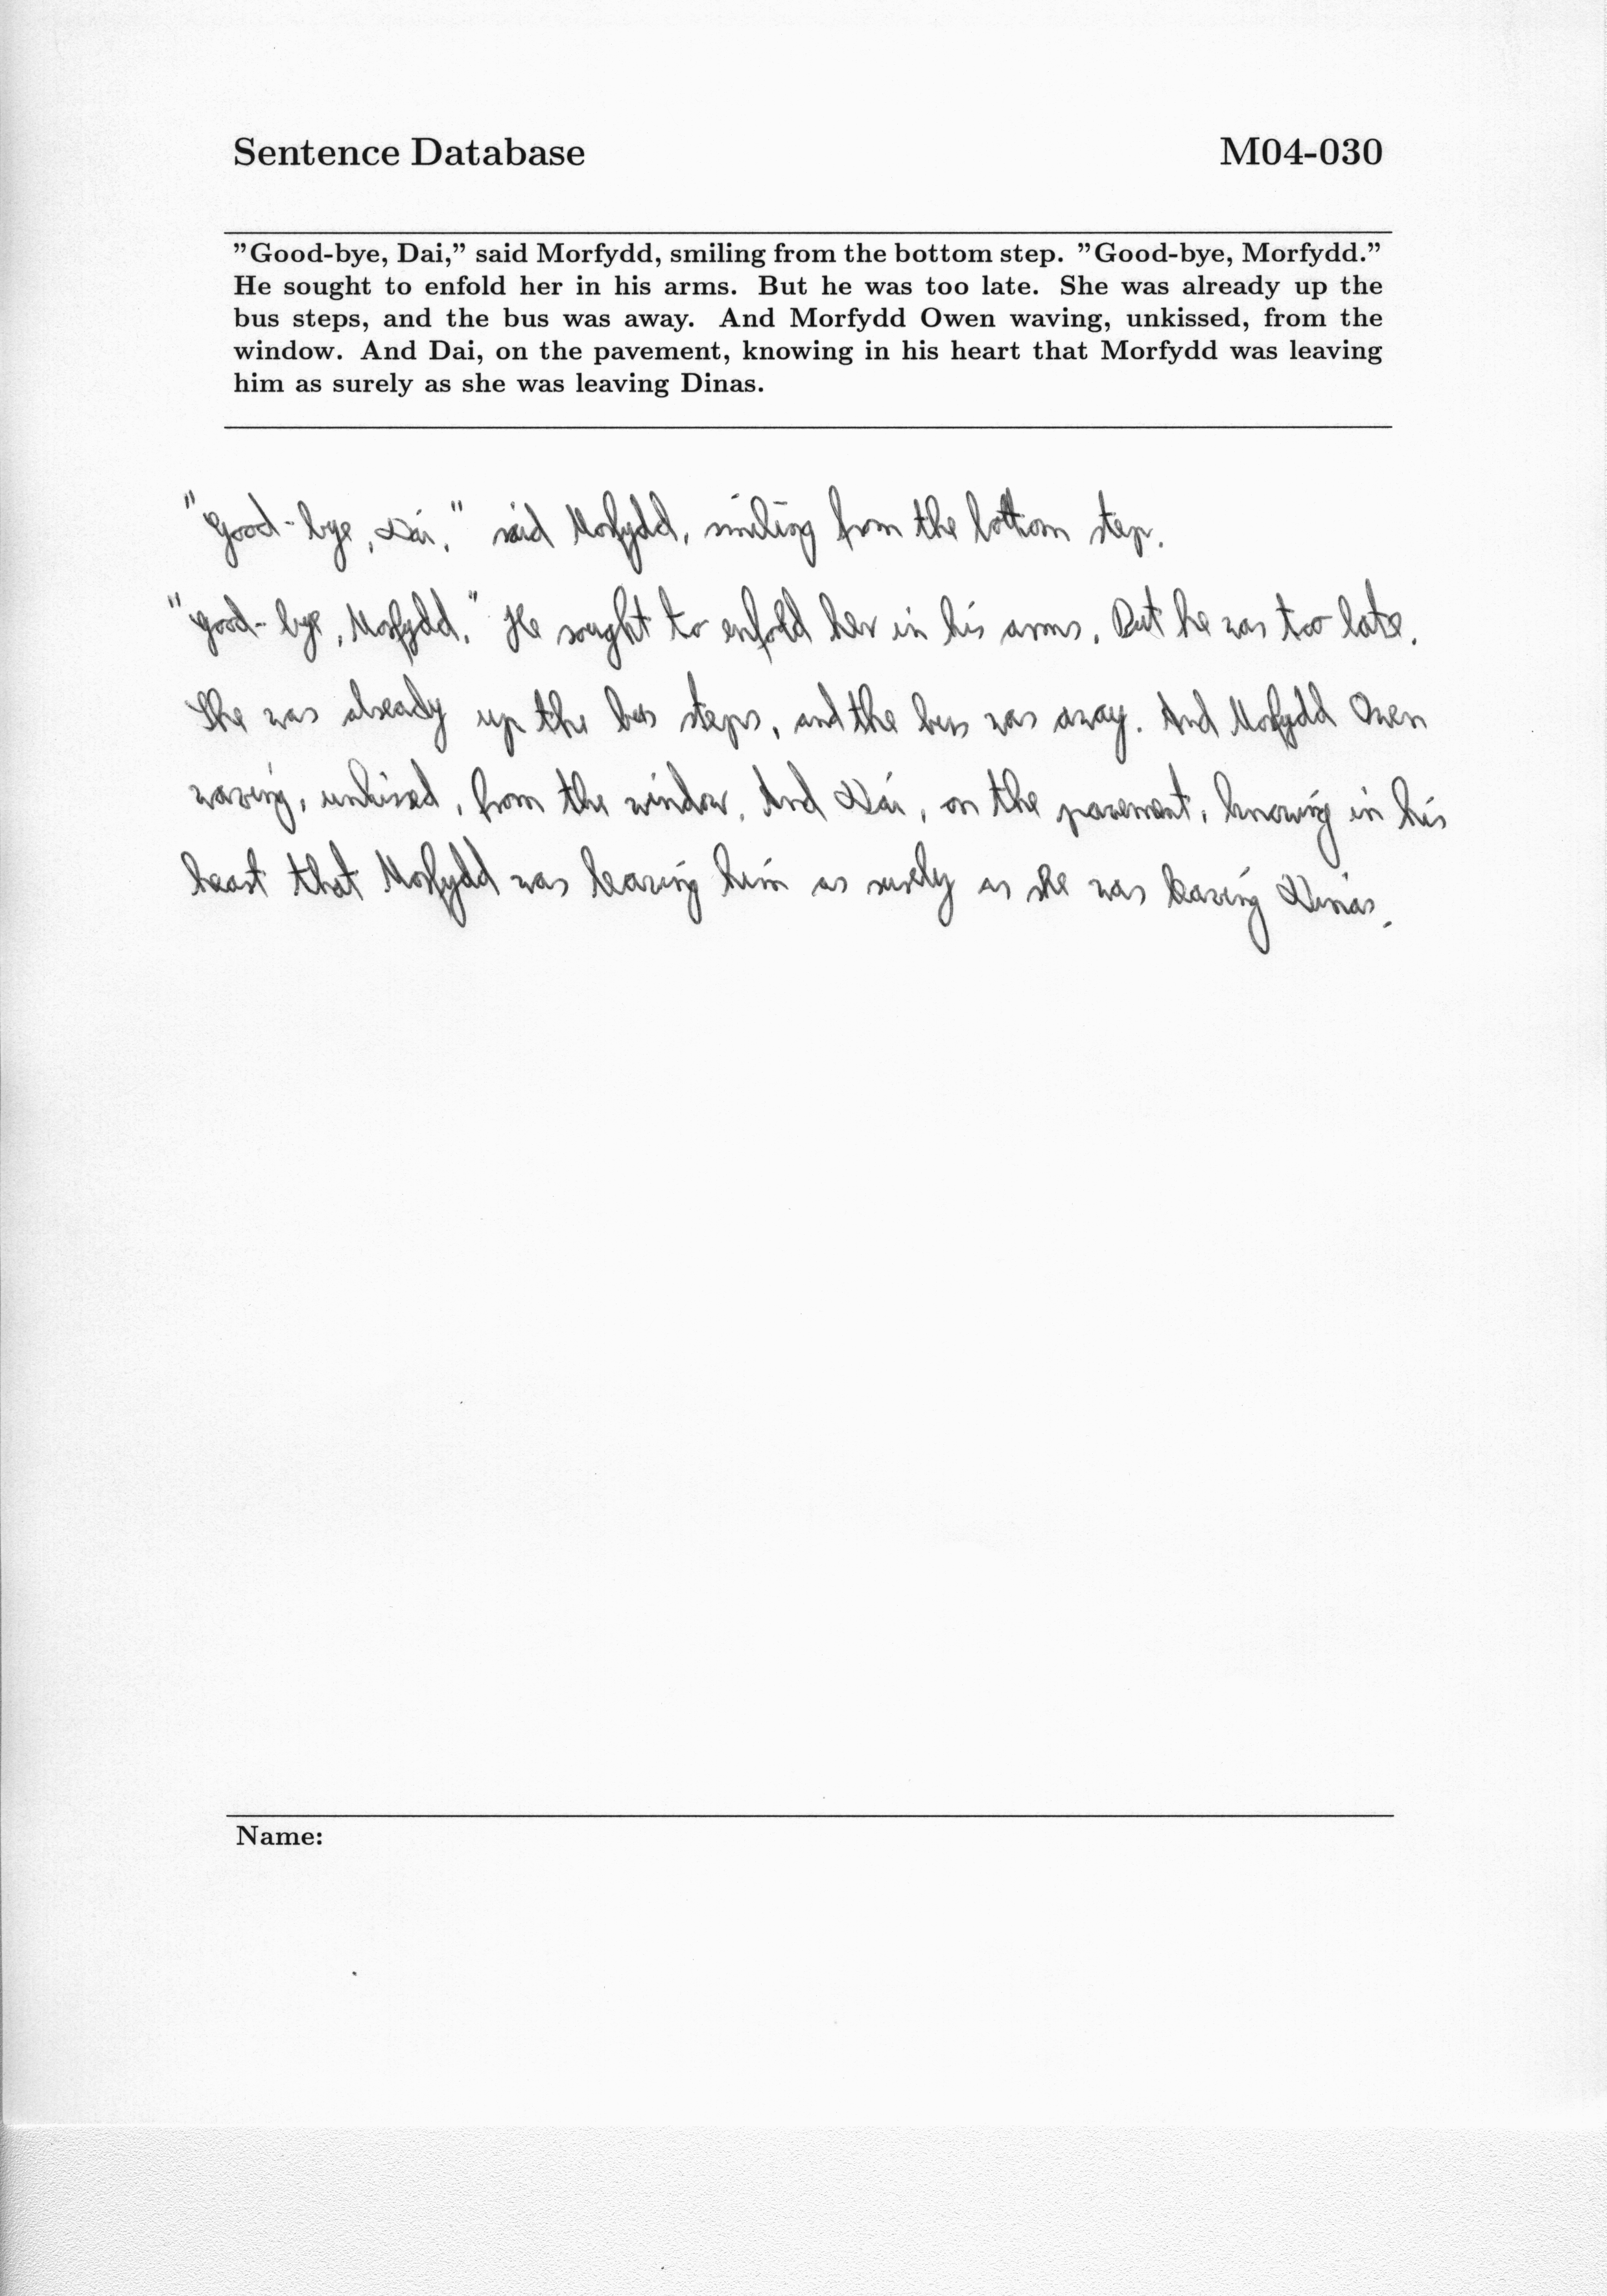 Sentence Database M04-030
"Good-bye, Dai," said Morfydd, smiling from the bottom step. "Good-bye, Morfydd."
He sought to enfold her in his arms. But he was too late. She was already up the
bus steps, and the bus was away. And Morfydd Owen waving, unkissed, from the
window. And Dai, on the pavement, knowing in his heart that Morfydd was leaving
him as surely as she was leaving Dinas.
"Good-bye, Dai," said Morfydd, smiling from the bottom step.
"Good-bye, Morfydd." He sought to enfold her in his arms. But he was too late.
She was already up the bus steps, and the bus was away. And Morfydd Owen
waving, unkissed, from the window. And Dai, on the pavement, knowing in his
heart that Morfydd was leaving him as surely as she was leaving Dinas.
Name: